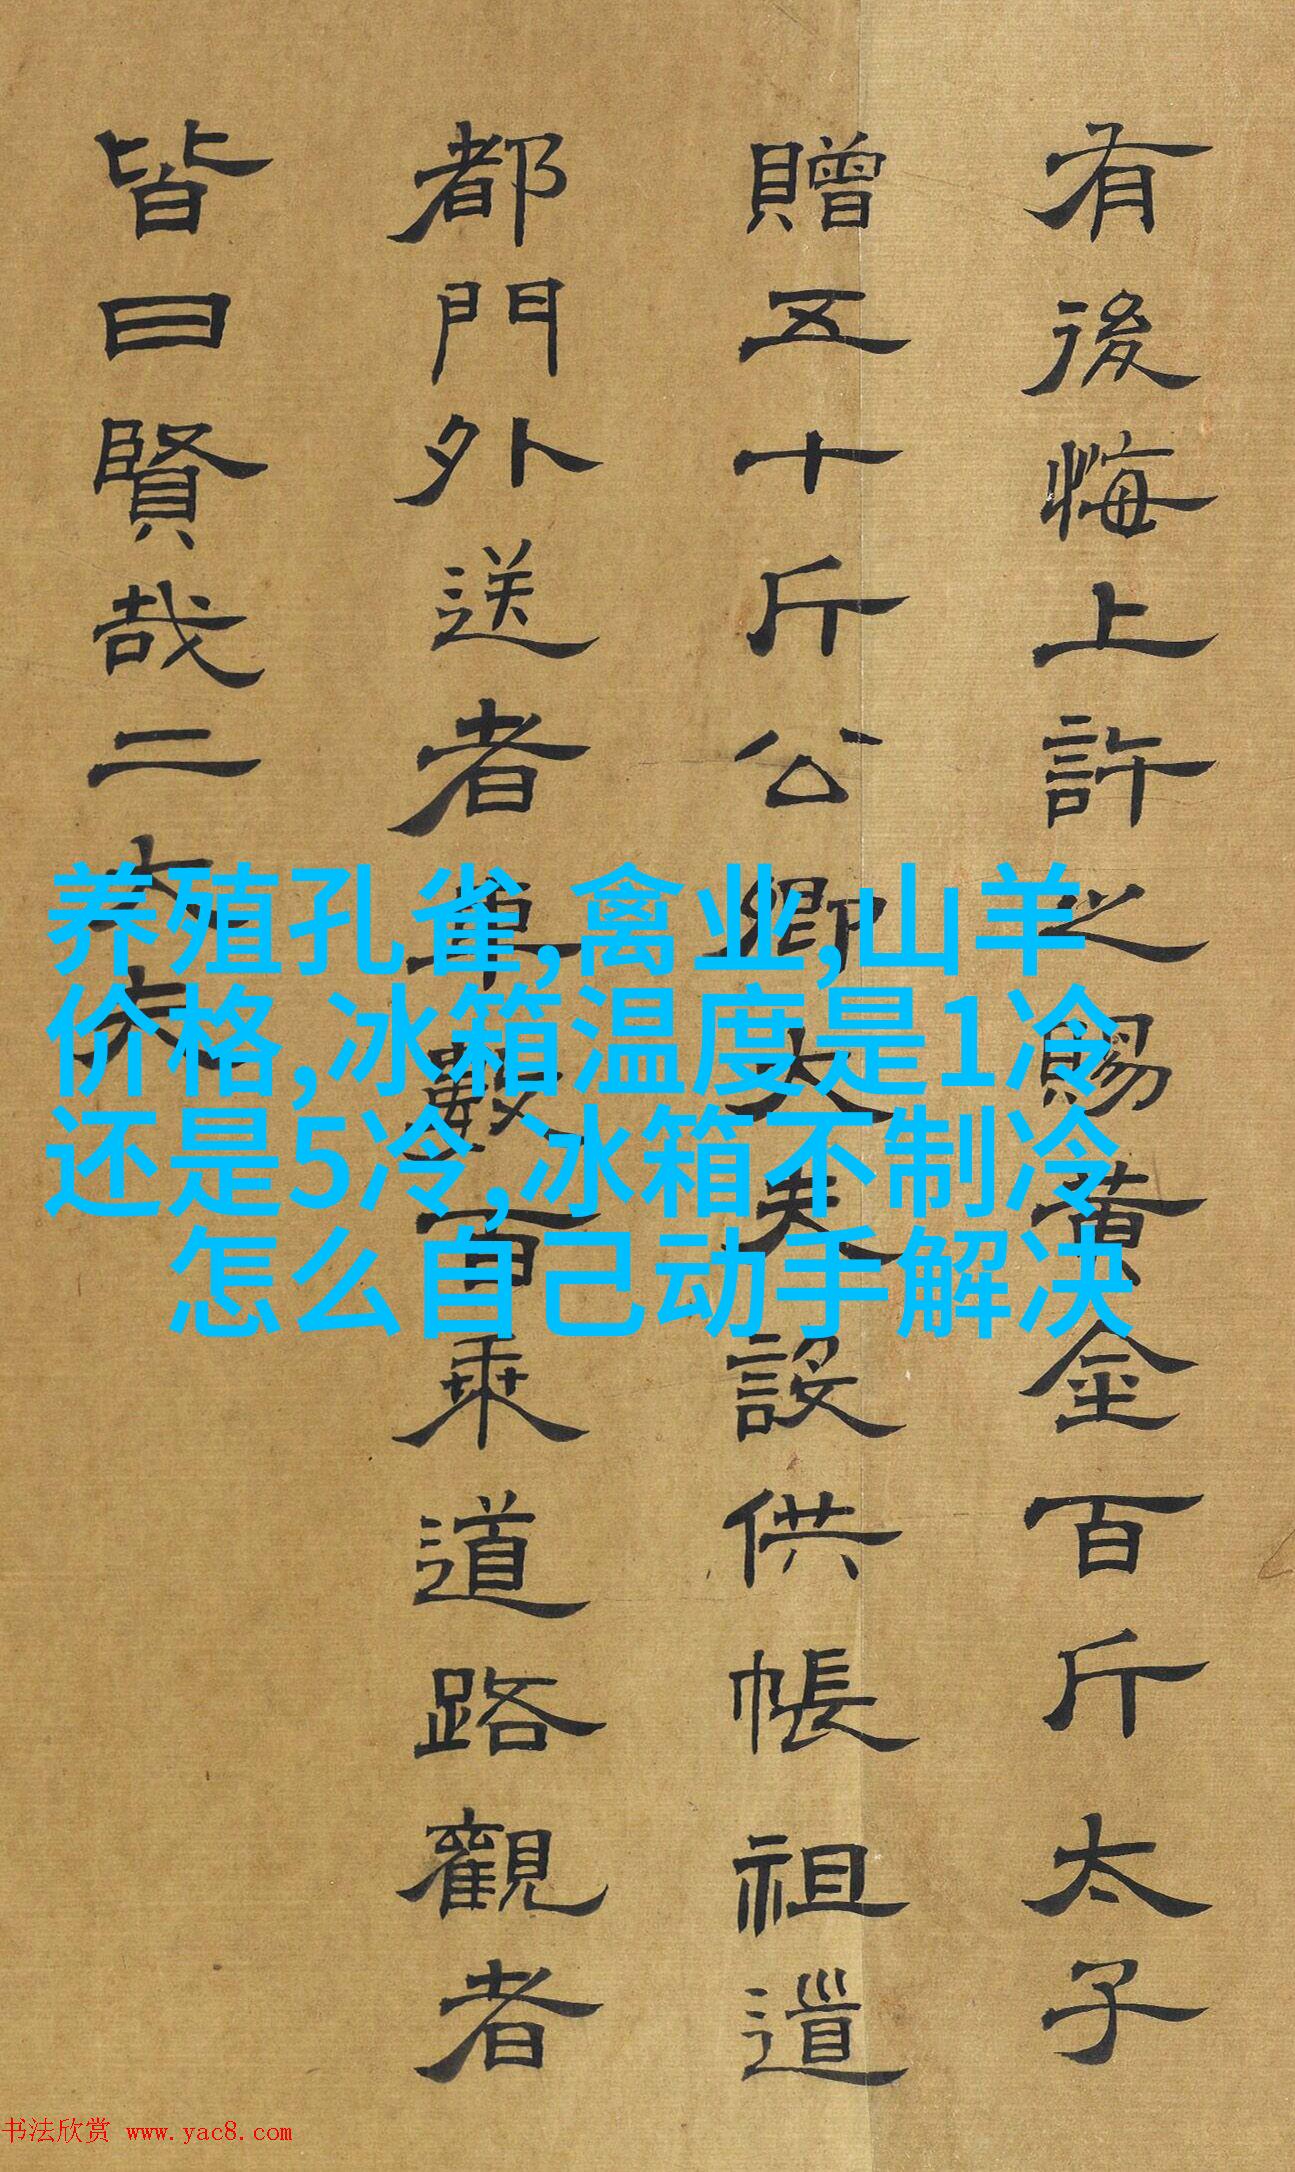 有後悔上許之賜黃金百斤太子
贈五十斤公卿大夫設供帳祖道
都門外送者車數百乘道路觀者
皆曰賢哉二大夫
养殖孔雀,禽业,山羊
价格,冰箱温度是1冷
还是5冷,冰箱不制冷
怎么自己动手解决
书法欣赏 www.yac8.com